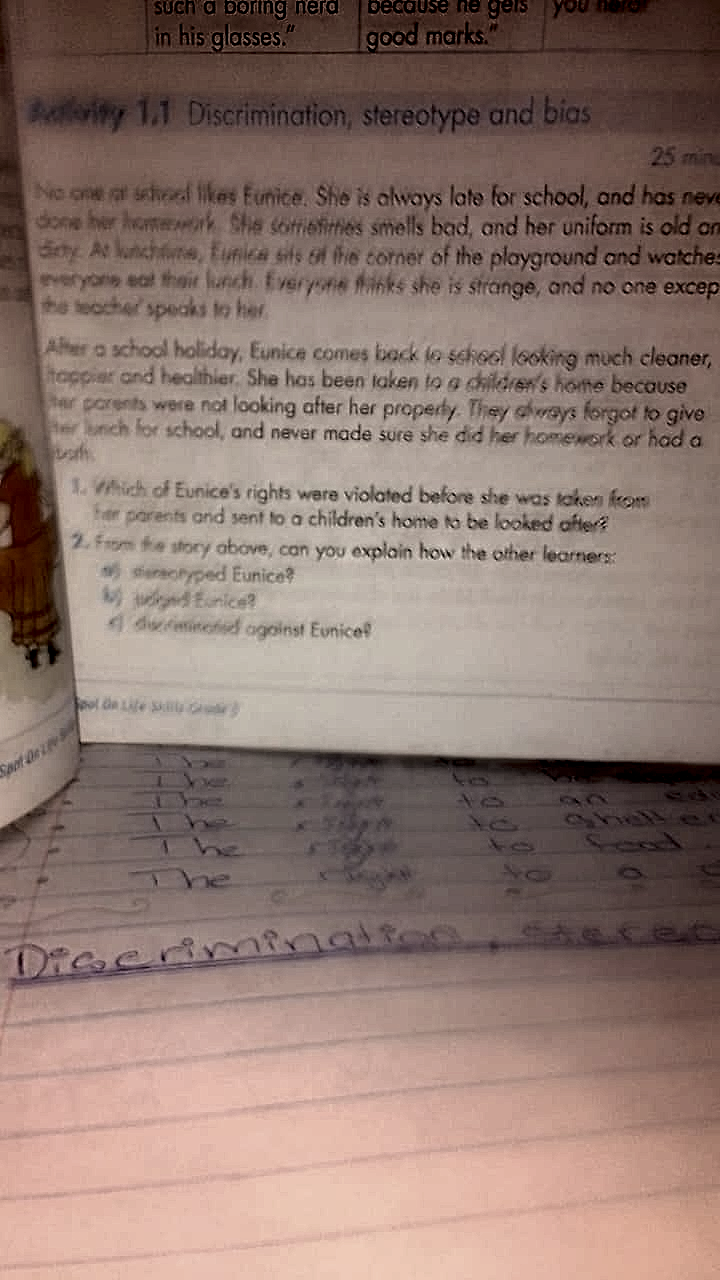 such a boring nerd
in his glasses."
because he gets
good marks."
you nerd!
Activity 1.1 Discrimination, stereotype and bias
25 mins
No one at school likes Eunice. She is always late for school, and has neve
done her homework. She sometimes smells bad, and her uniform is old an
dirty. At lunchtime, Eunice sits at the corner of the playground and watches
everyone eat their lunch. Everyone thinks she is strange, and no one excep
the teacher speaks to her.
After a school holiday, Eunice comes back to school looking much cleaner,
happier and healthier. She has been taken to a children's home because
her parents were not looking after her properly. They always forgot to give
her lunch for school, and never made sure she did her homework or had a
bath.
1. Which of Eunice's rights were violated before she was taken from
her parents and sent to a children's home to be looked after?
2. From the story above, can you explain how the other learners:
a) stereotyped Eunice?
b) judged Eunice?
c) discriminated against Eunice?
Spot On Life Skills Grade
Spot On Life
The right to
The right to an
The right to shelter
The right to food.
The right to a
Discrimination, stereo